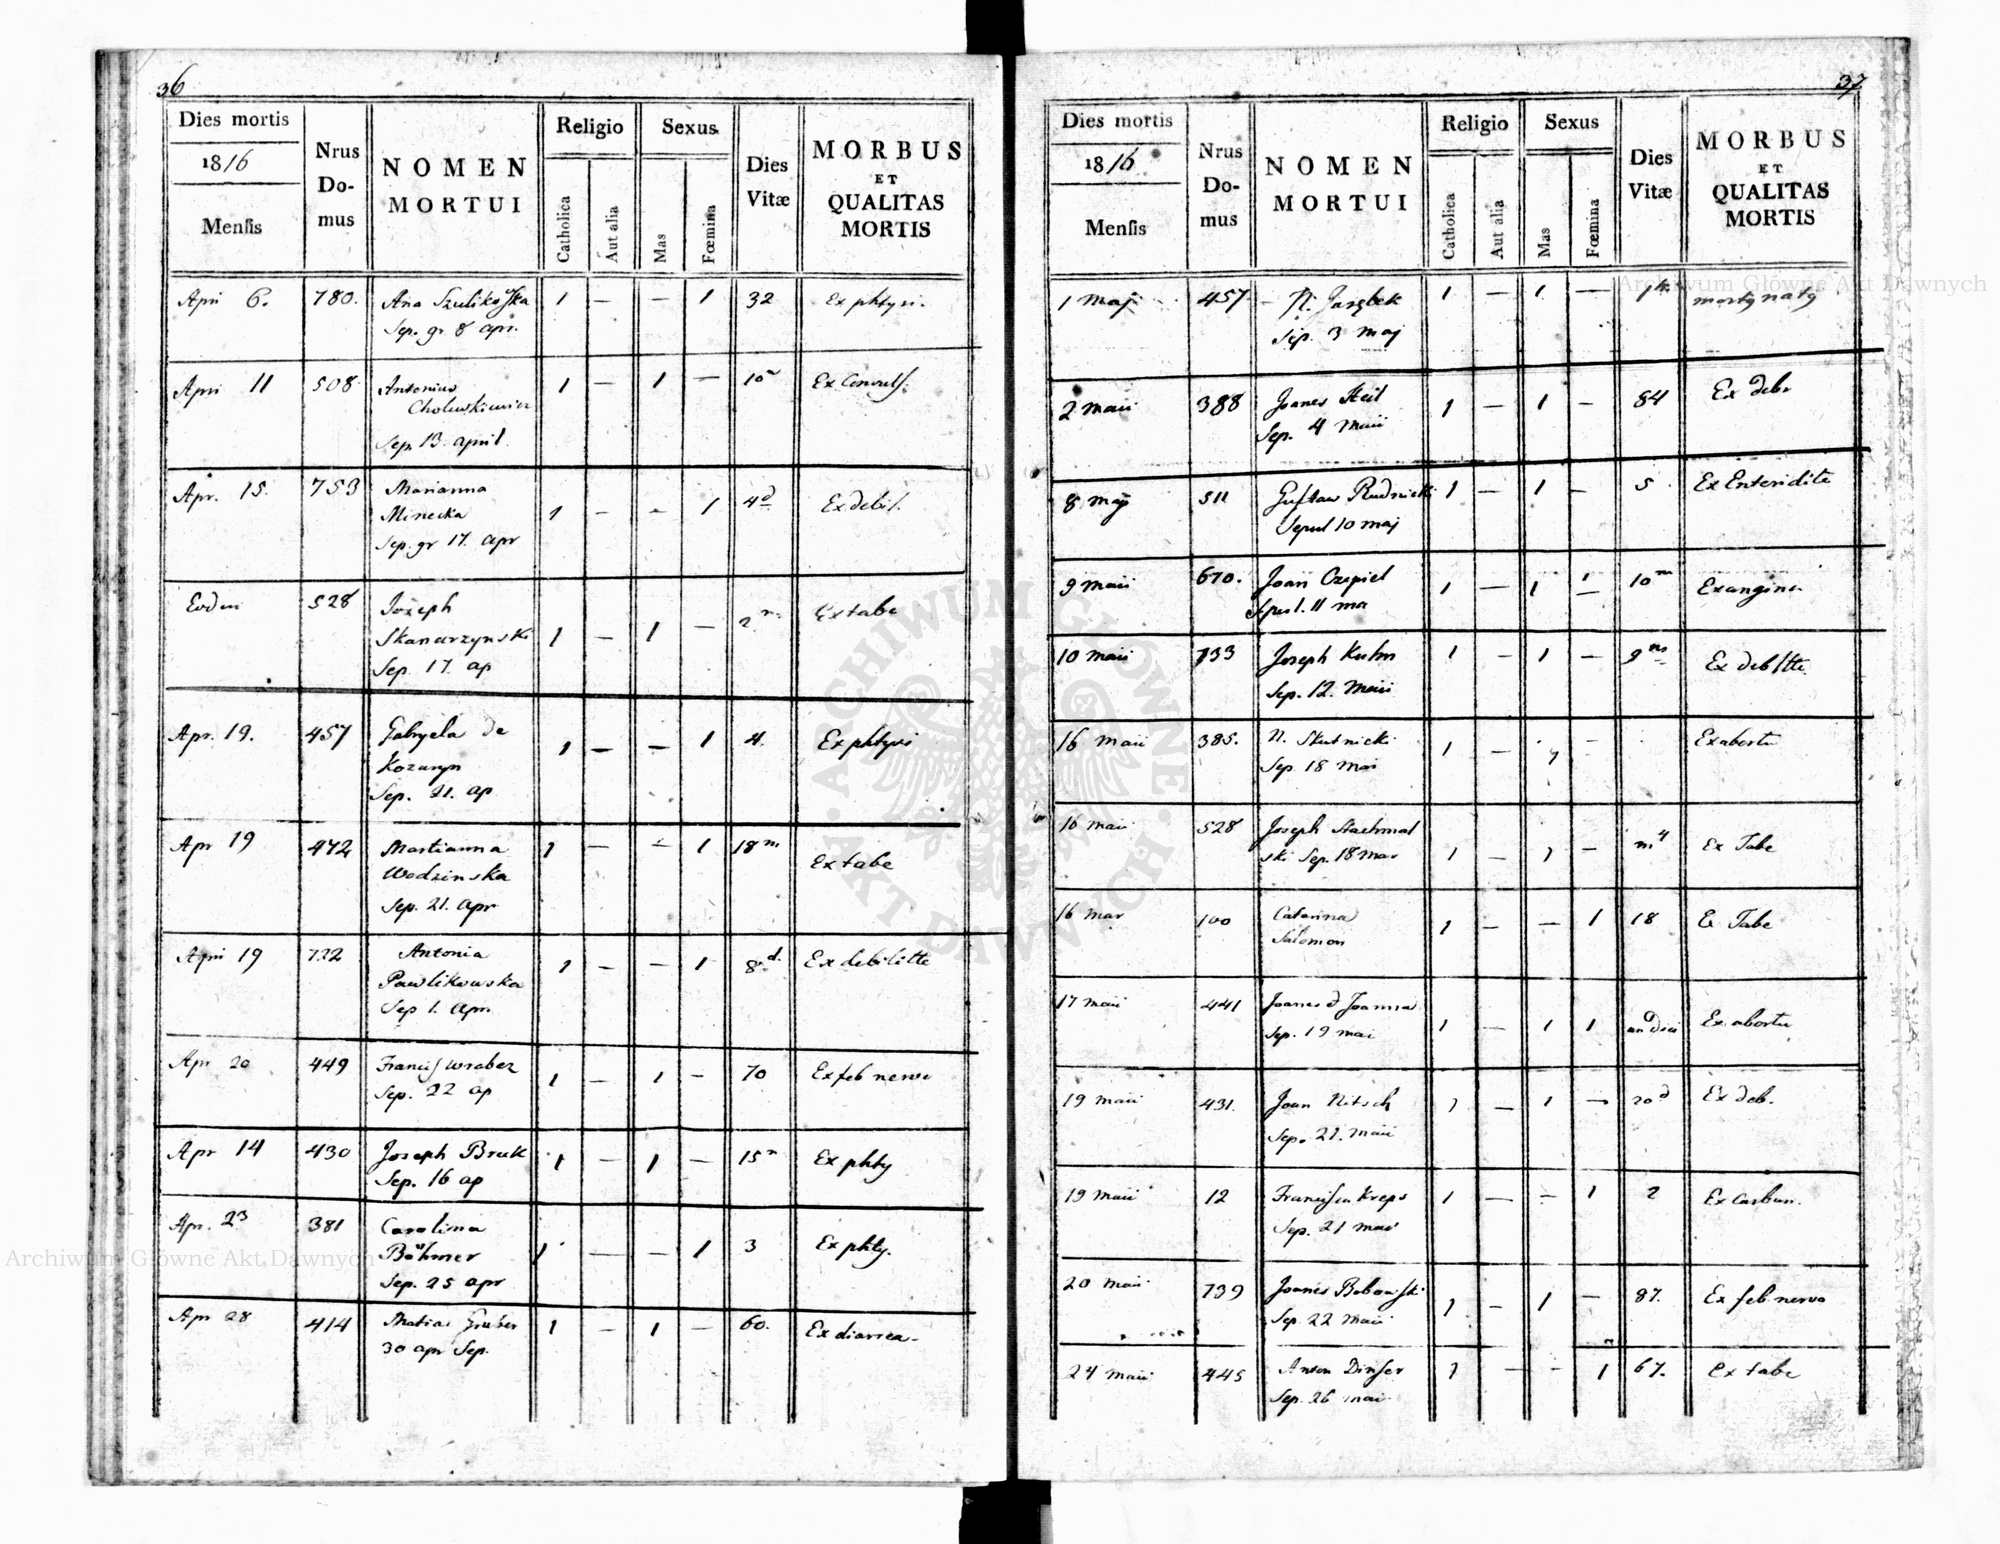 36
Dies mortis
1816
Mensis
Nrus Do-mus
NOMEN MORTUI
Religio
Catholica
Aut alia
Sexus
Mas
Fœmina
Dies Vitæ
MORBUS ET QUALITAS MORTIS
Apri 6. 780. Ana Szulikowska 1 — — 1 32 Ex phtysi.
Sep. gr 8 apr.
Apri 11 508. Antonius 1 — 1 — Ex Convuls.
Sep. 13. april.
Apr. 15. 753 Marianna
Minecka 1 - - 1 4d Ex debil.
Sep. gr 17. apr
Eodem 528 Joseph Ex tabe
Skanarzynski 1 — 1 —
Sep. 17. ap
Apr. 19. 457 Gabryela de 1 — — 1 4. Ex phtysi
Kozaryn
Sep. 21. ap
Apr 19 472 Marianna 1 — — 1 18m Ex tabe
Wodzinska
Sep. 21. apr
Apri 19 722 Antonia 1 — — 1 8d. Ex debilitte
Pawlikowska
Sep 1. apr
Apr 20 449 Francis Wrabez 1 — 1 — 70 Ex feb nerve
Sep. 22 ap
Apr 14 430 Joseph Bruk 1 — 1 — Ex phty
Sep. 16 ap
Apr. 23 381 Carolina
Böhmer 1 — — 1 3 Ex phty.
Sep. 25 apr
Apr 28 414 Matias Gruber 1 — 1 — 60. Ex diarrea.
30 apr Sep.
37
Dies mortis
1816
Mensis
Nrus Do-mus
NOMEN MORTUI
Religio
Catholica
Aut alia
Sexus
Mas
Fœmina
Dies Vitæ
MORBUS ET QUALITAS MORTIS
1 Maj 457 N. Jarzbek 1 — 1 —
Sep. 3 maj
2 maii 388 Joanes Heil 1 — 1 — 84 Ex debi
Sep. 4 Maii
8 maji 511 Gustaw Rudnicki 1 — 1 — 5 Ex Enteridite
Sepul 10 maj
9 maii 670. Joan Czepiel 1 — 1 10m Ex angina
11 ma
10 maii 733 Joseph Kuhn 1 — 1 — 9ms Ex debltte
Sep. 12. Maii
16 Maii 385. N. Skutnicki 1 - 1 - Ex abortu
Sep. 18 Mai
16 maii 528 Joseph Stachmal
ski Sep. 18 mai 1 — 1 — m4 Ex Tabe
16 mai 100 Catarina 1 — — 1 18 Ex Tabe
Salomon
17 maii 441 Joanes d Joanna
Sep. 19 mai 1 — 1 1 Ex abortu
19 maii 431. Joan Nitsch 1 — 1 — 20d Ex deb.
Sep. 21. Maii
19 maii 12 Francisca Kreps 1 — — 1 2 Ex Carbun.
Sep. 21 mai
20 maii 739 Joanes Bobowski 1 — 1 — 87. Ex feb. nervo
Sep. 22 Maii
24 maii 445 Anton Dinser 1 — - 1 67. Ex tabe
Sep. 26 mai
Archiwum Główne Akt Dawnych
Archiwum Główne Akt Dawnych
ARCHIWUM GŁÓWNE AKT DAWNYCH